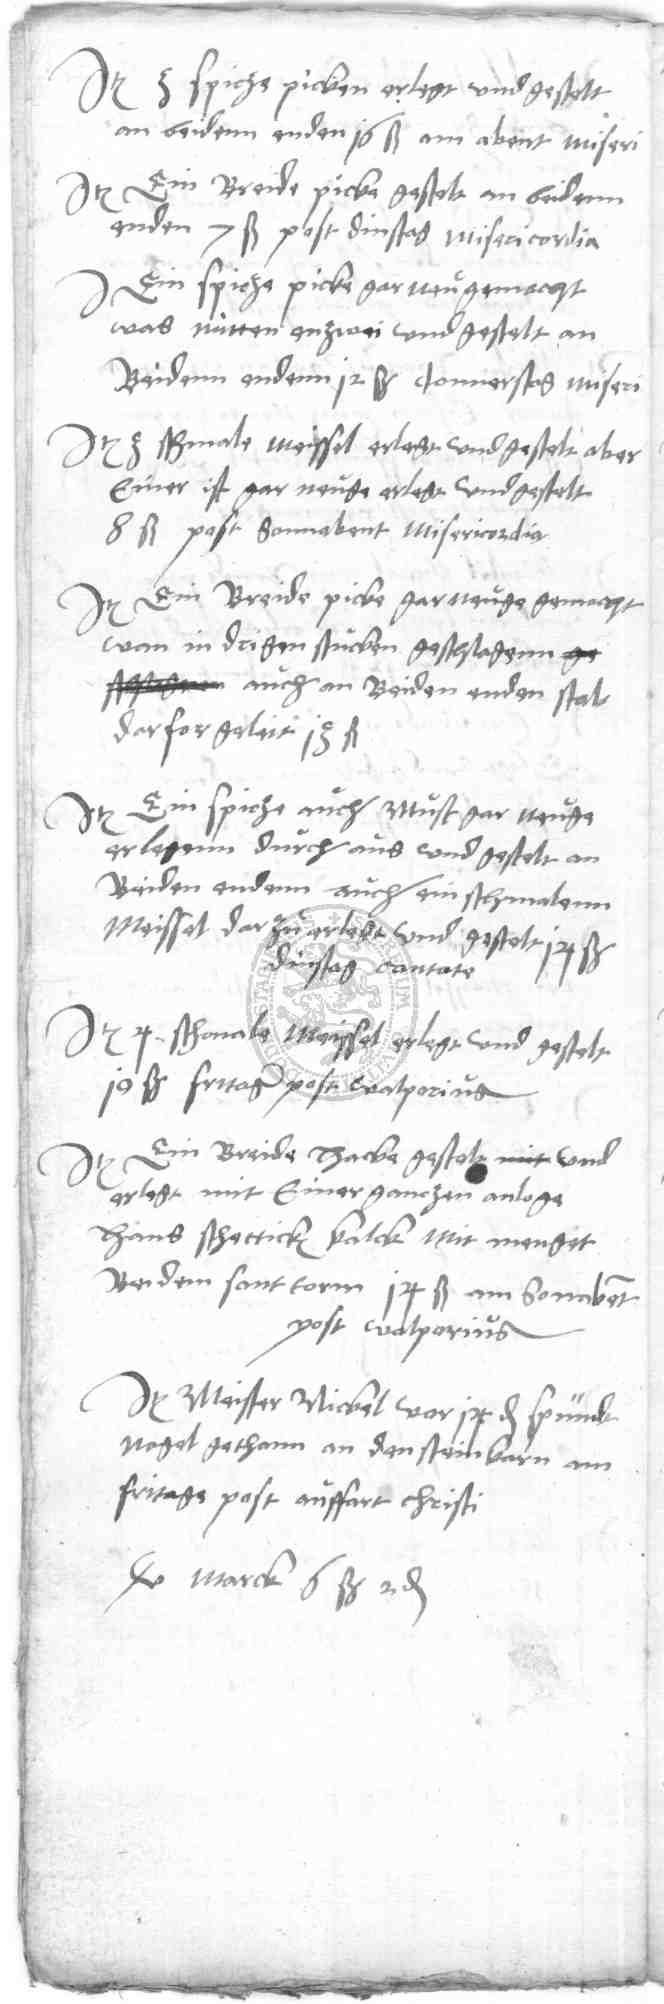 Itz 3 spicze picken erlegt und gestelt
an beidenn enden 16 ß am abent Miseri
Itz Ein Breide picke gestelt an beidenn
enden 7 ß post dinstag Misericordia
I Ein spicze picke gar neu gemacgt
was mitten enzwei und gestelt an
Beidenn endenn 12 ß donnerstag Miseri
Itz 3 schmale Meissel erlegt und gestelt aber
Einer ist gar neuge erlegt und gestelt
8 ß post Sonnabent Misericordia
Itz Ein Breide picke gar neuge gemacgt
wan in drigen stucken geschlagenn ge
auch an Beiden enden stal
dar for geleit 13 ß
Itz Ein spicze auch Must gar neuge
erlegenn durch aus und gestelt an
Beiden endenn auch ein schmalenn
Meissel dar zu erlegt und gestelt 14 ß
dinstag Cantate
Itz 4 schmale Meissel erlegt und gestelt
10 ß fritag post walporius
Itz Ein Breide hacke gestelt mit und
erlegt mit Einer ganczen anloge
Hans kalck Mit menget
Bei dem sant torm 14 ß am Sonabet
post walporius
Itz Meister Nickel vor 14 d spundt
Nagel gethann an den steinkarn am
fritage post auffart Christi
Marck 6 ß 2 d